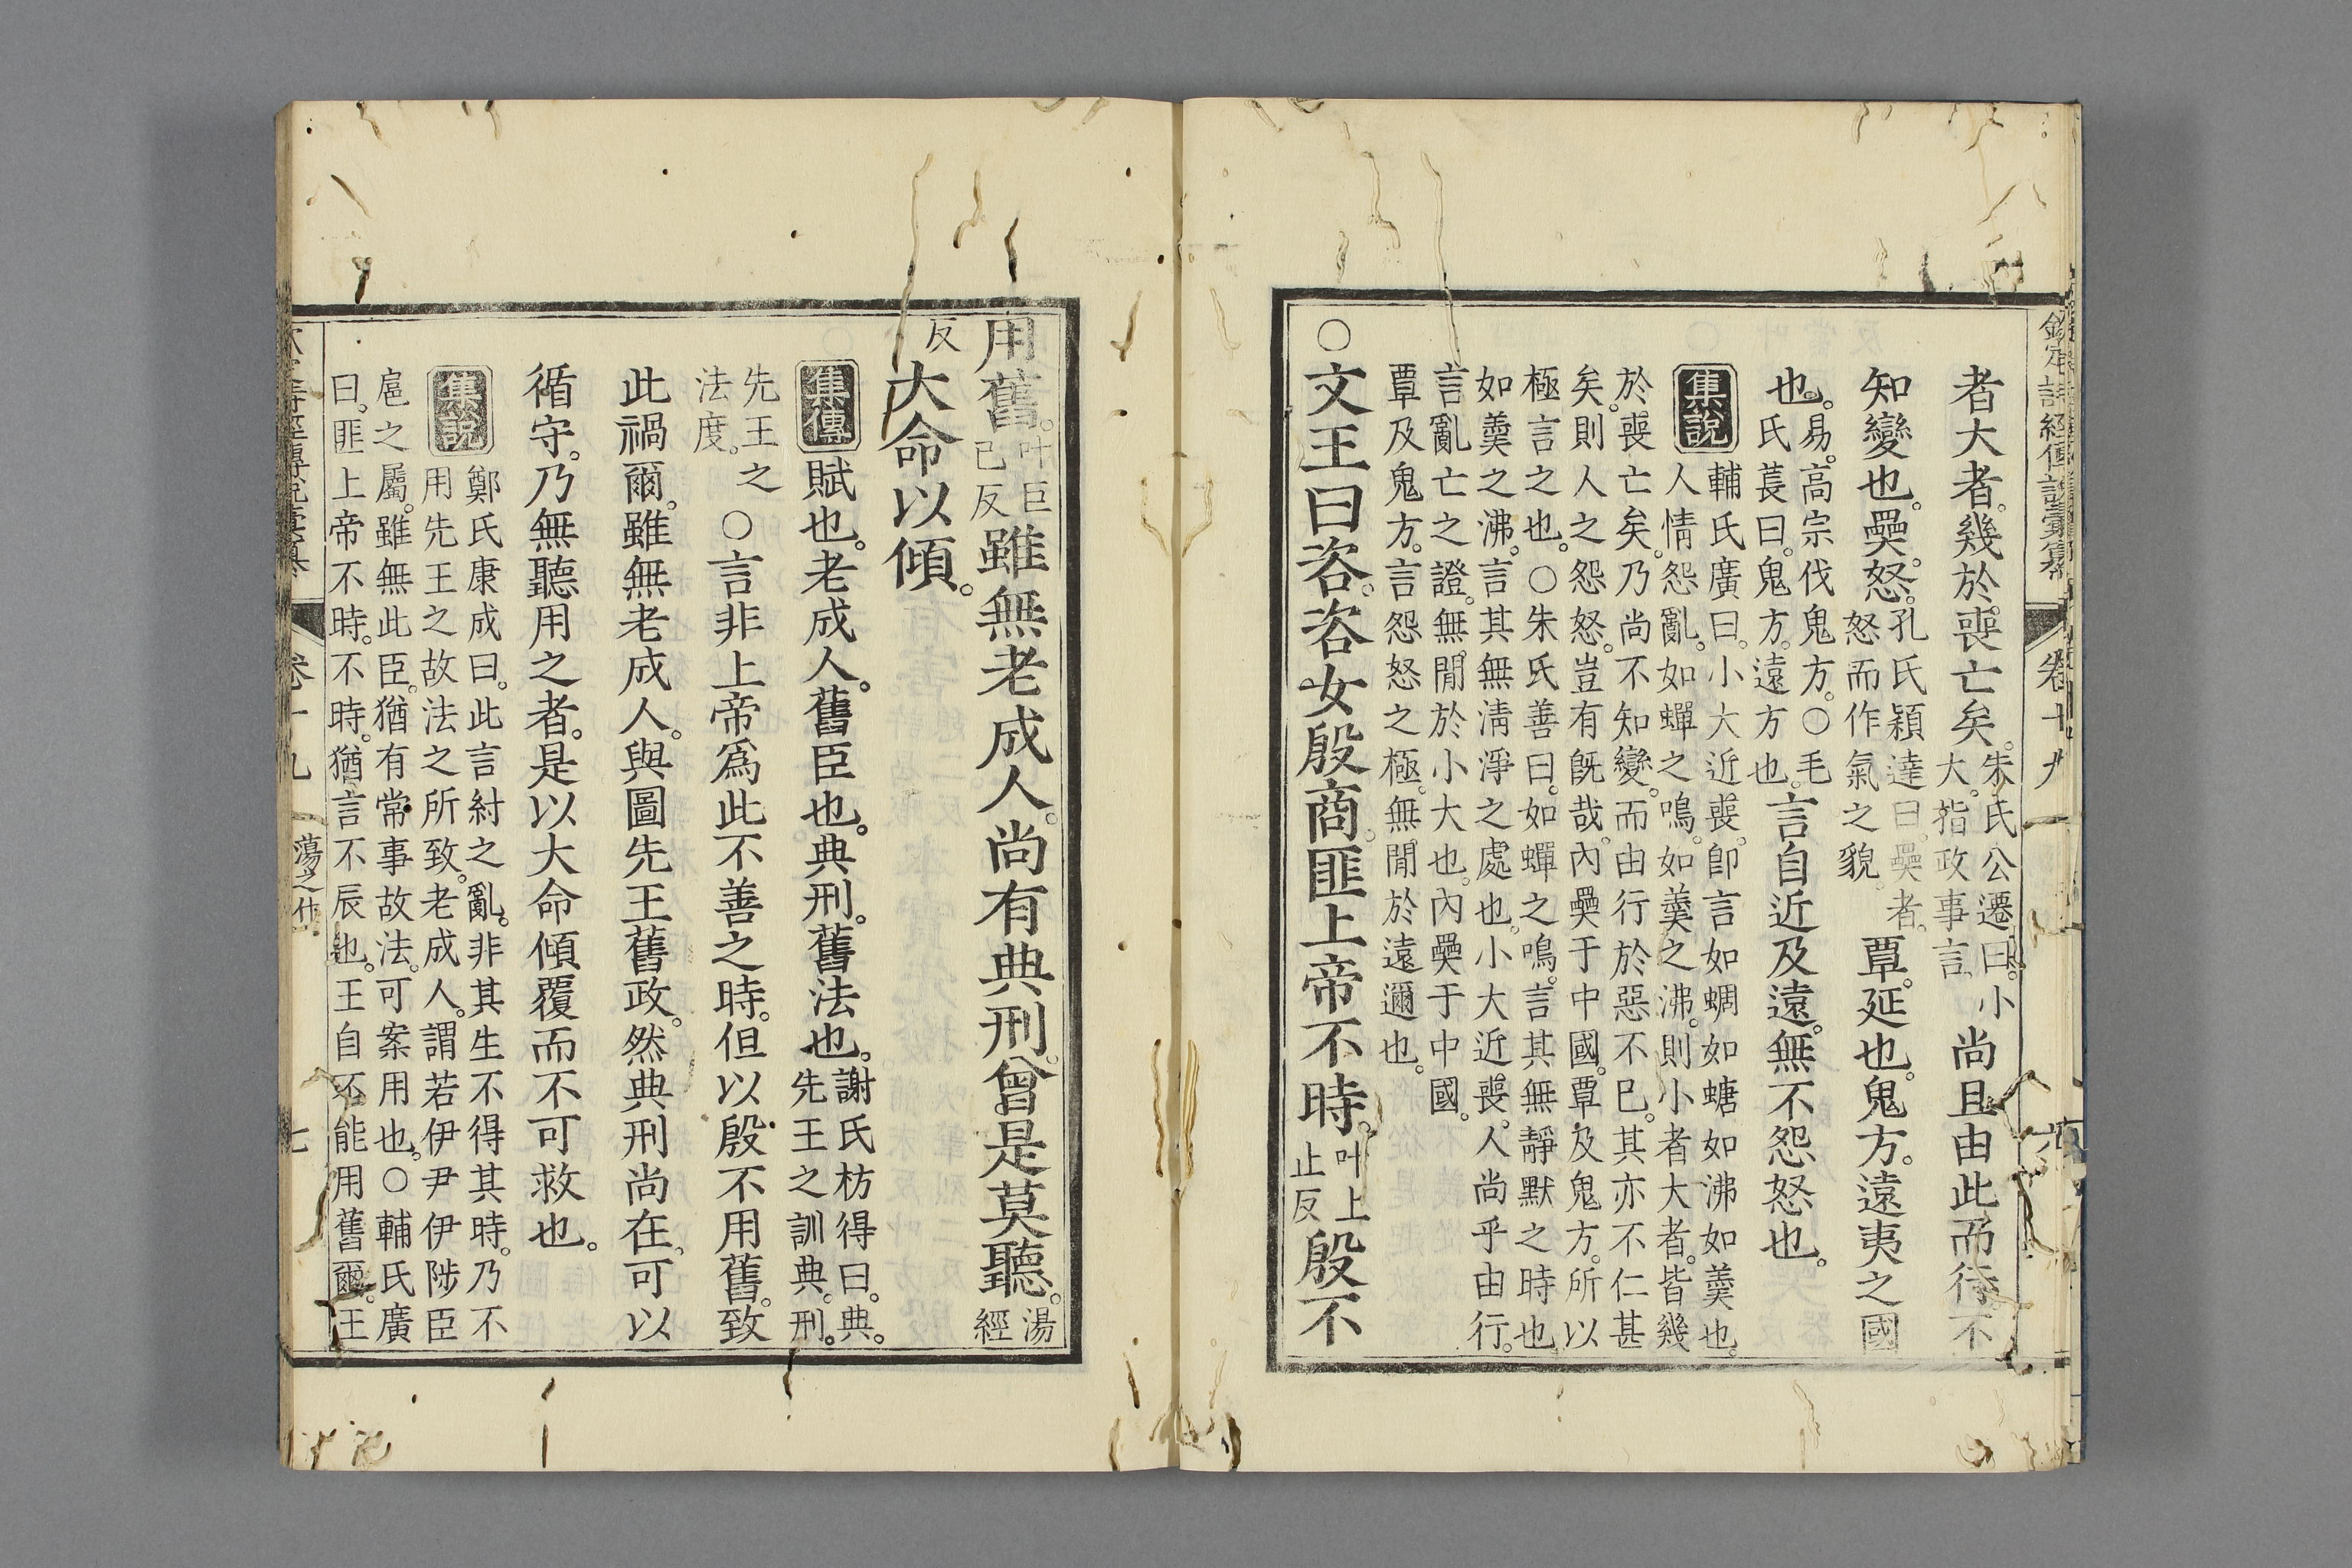 欽定詩經傳說彙纂 卷十九 六
者大者。幾於喪亡矣。朱氏公遷曰。小大。指政事言。尚且由此而行。不
知變也。奰。怒。孔氏穎達曰。奰者。怒而作氣之貌。覃。延也。鬼方。遠夷之國
也。易。高宗伐鬼方。○毛氏萇曰。鬼方。遠方也。言自近及遠。無不怨怒也。
集說 輔氏廣曰。小大近喪。卽言如蜩如螗如沸如羹也。
人情怨亂。如蟬之鳴。如羹之沸。則小者大者。皆幾
於喪亡矣。乃尚不知變。而由行於惡不已。其亦不仁甚
矣。則人之怨怒。豈有旣哉。內奰于中國。覃及鬼方。所以
極言之也。○朱氏善曰。如蟬之鳴。言其無靜默之時也。
如羹之沸。言其無淸淨之處也。小大近喪。人尚乎由行。
言亂亡之證。無閒於小大也。內奰于中國。
覃及鬼方。言怨怒之極。無閒於遠邇也。
○文王曰咨。咨女殷商。匪上帝不時。叶上止反殷不
用舊。叶巨已反雖無老成人。尚有典刑。曾是莫聽。湯經
反大命以傾。
集傳 賦也。老成人。舊臣也。典刑。舊法也。謝氏枋得曰。典。先王之訓典。刑。
先王之法度。○言非上帝爲此不善之時。但以殷不用舊。致
此禍爾。雖無老成人。與圖先王舊政。然典刑尚在。可以
循守。乃無聽用之者。是以大命傾覆而不可救也。
集說 鄭氏康成曰。此言紂之亂。非其生不得其時。乃不
用先王之故法之所致。老成人。謂若伊尹伊陟臣
扈之屬。雖無此臣。猶有常事故法。可案用也。○輔氏廣
曰。匪上帝不時。不時。猶言不辰也。王自不能用舊爾。王
卷十九 蕩之什 七